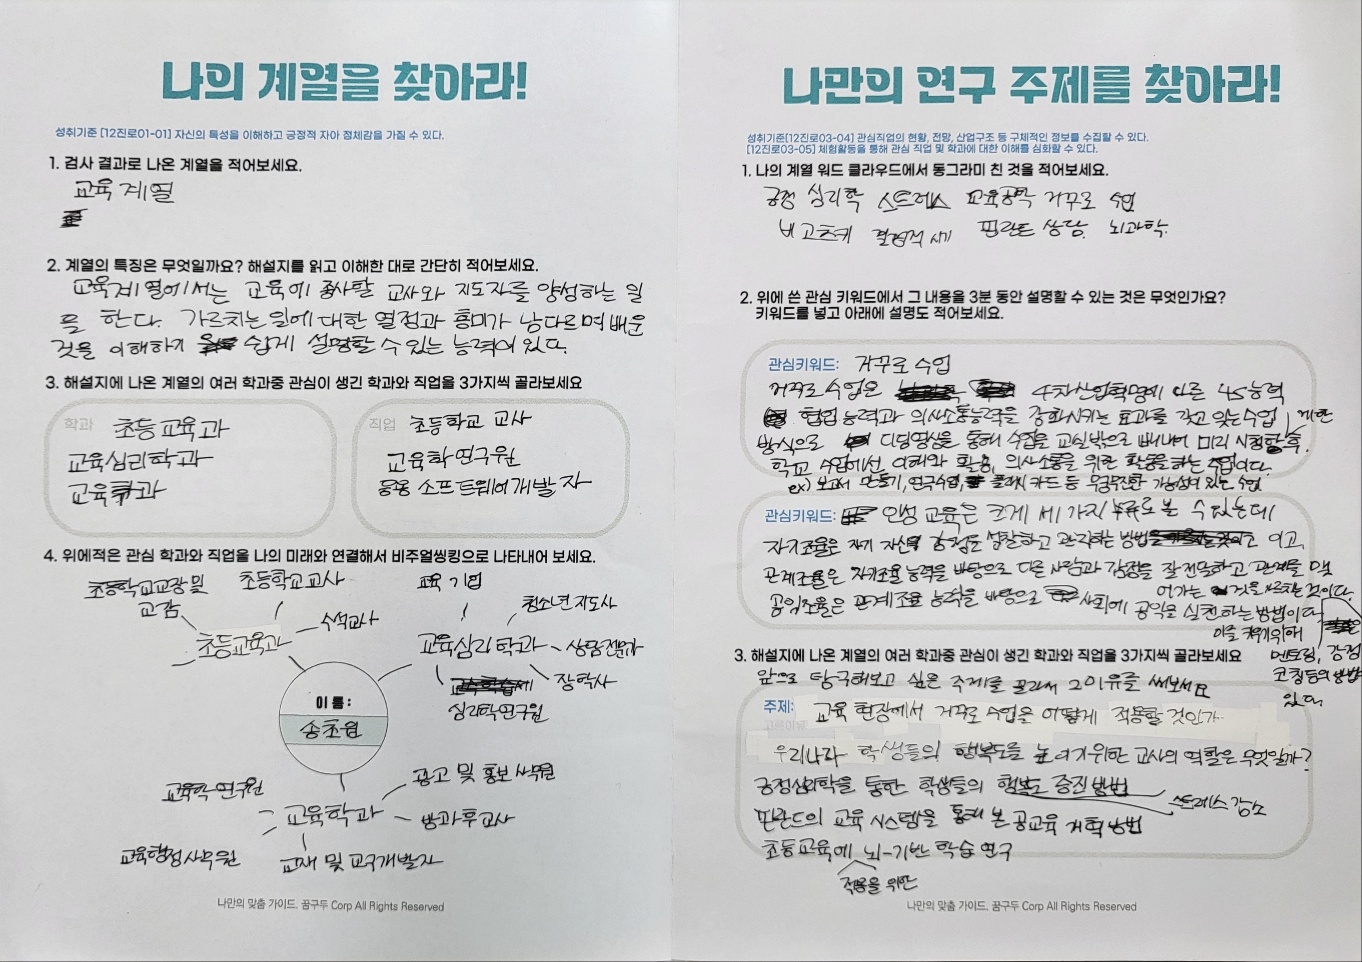 나의 계열을 찾아라!
성취기준 [12진로01-01] 자신의 특성을 이해하고 긍정적 자아 정체감을 가질 수 있다.
1. 검사 결과로 나온 계열을 적어보세요.
교육 계열
2. 계열의 특징은 무엇일까요? 해설지를 읽고 이해한 대로 간단히 적어보세요.
교육계열에서는 교육에 종사할 교사와 지도자를 양성하는 일
을 한다. 가르치는 일에 대한 열정과 흥미가 남다르며 배운
것을 이해하기 쉽게 설명할 수 있는 능력이 있다.
3. 해설지에 나온 계열의 여러 학과중 관심이 생긴 학과와 직업을 3가지씩 골라보세요
학과 초등교육과
교육심리학과
교육학과
직업 초등학교 교사
교육학연구원
응용 소프트웨어개발자
4. 위에적은 관심 학과와 직업을 나의 미래와 연결해서 비주얼씽킹으로 나타내어 보세요.
초등학교교장 및
교감
초등학교교사
수석교사
초등교육과
교육 기업
청소년 지도사
교육심리학과
상담전문가
장학사
심리학연구원
이름:
송초원
교육학 연구원
광고 및 홍보 사무원
교육학과
방과후교사
교육행정사무원
교재 및 교구개발자
나만의 맞춤 가이드. 꿈구두 Corp All Rights Reserved
나만의 연구 주제를 찾아라!
성취기준[12진로03-04] 관심직업의 현황, 전망, 산업구조 등 구체적인 정보를 수집할 수 있다.
[12진로03-05] 체험활동을 통해 관심 직업 및 학과에 대한 이해를 심화할 수 있다.
1. 나의 계열 워드 클라우드에서 동그라미 친 것을 적어보세요.
긍정 심리학 스트레스 교육공학 거꾸로 수업
비고츠키 결정적 시기 핀란드 상담 뇌과학
2. 위에 쓴 관심 키워드에서 그 내용을 3분 동안 설명할 수 있는 것은 무엇인가요?
키워드를 넣고 아래에 설명도 적어보세요.
관심키워드: 거꾸로 수업
거꾸로 수업은 4차산업혁명에 따른 4S능력
협업 능력과 의사소통능력을 강화시키는 효과를 갖고 있는 수업
방식으로 디딤영상을 통해 수업을 교실밖으로 빼내어 미리 시청한 후,
학교 수업에선 이해와 활용, 의사소통을 위한 활동을 하는 수업이다.
ex) 보고서 만들기, 연구수업, 플래시 카드 등 무궁무진한 가능성이 있는 수업
관심키워드: 인성 교육은 크게 세 가지 부류로 볼 수 있는데
자기조율은 자기 자신의 감정을 성찰하고 관리하는 방법이고,
관계조율은 자기조율 능력을 바탕으로 다른 사람과 감정을 잘 전달하고 관계를 맺
어가는 것을 시작하는 것이다.
공익조율은 관계조율 능력을 바탕으로 사회에 공익을 실천하는 방법이다
이를 키우기위해
멘토링, 감정
코칭등의 방법이
있다.
3. 해설지에 나온 계열의 여러 학과중 관심이 생긴 학과와 직업을 3가지씩 골라보세요
앞으로 탐구해보고 싶은 주제를 골라서 그 이유를 써보세요
주제: 교육 현장에서 거꾸로 수업을 어떻게 적용할 것인가
우리나라 학생들의 행복도를 높이기위한 교사의 역할은 무엇일까?
긍정심리학을 통한 학생들의 행복도 증진 방법
스트레스 감소
핀란드의 교육 시스템을 통해 본 공교육 개혁 방법
초등교육에 뇌-기반 학습 연구
적용을 위한
나만의 맞춤 가이드. 꿈구두 Corp All Rights Reserved